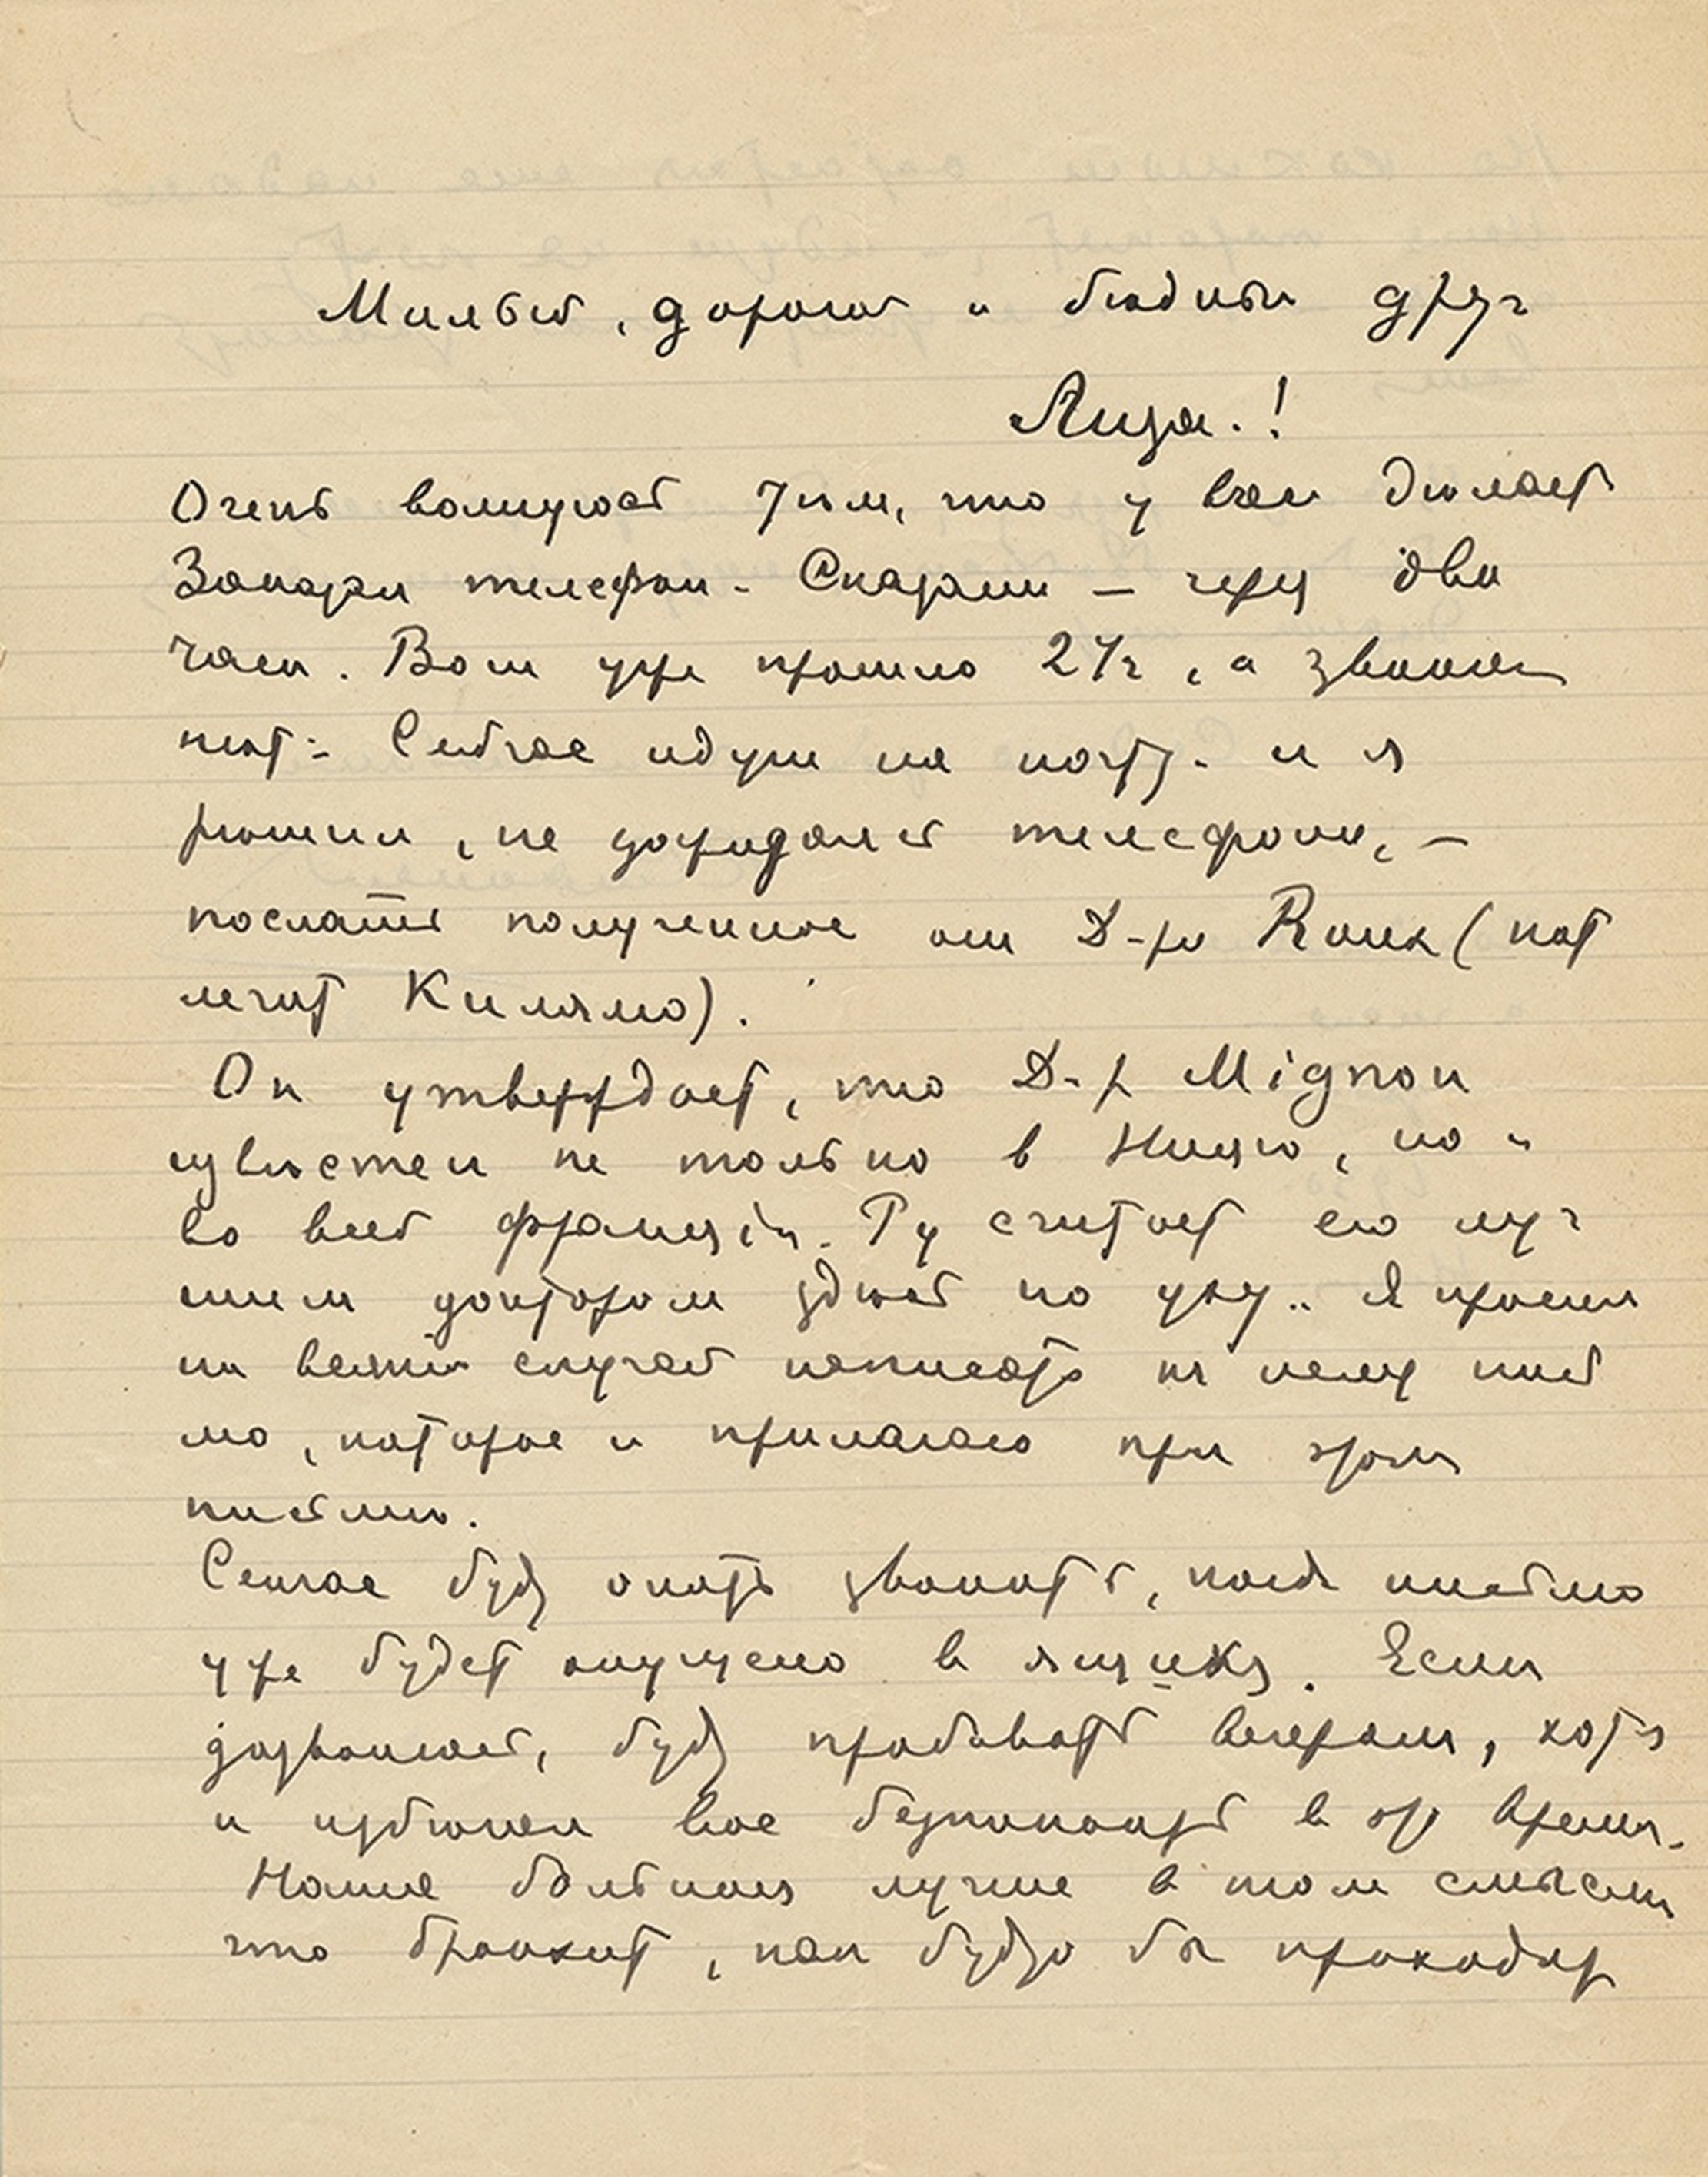 Милый, дорогой и бѣдный друг
Лиза.!
Очень волнуюсь тѣм, что у вас дѣлает
Заказал телефон. Сказали — через два
часа. Вот уже прошло 2½, а звонка
нѣт. Сейчас идут на почту и я
рѣшил, не дождавшись телефона, —
послать полученное от D-ра Roux (
лечит).
Он утверждает, что D-r Mignon
извѣстен не только в Ниццѣ, но и
во всей Франціи. Ру считает его луч
шим доктором здѣсь по уху.. Я просил
на всякий случай написать к нему пись
мо, которое и прилагаю при этом
письмѣ.
Сейчас буду опять звонить, когда письмо
уже будет опущено в ящикъ. Если
дозвонюсь, буду пробовать вечером, хотя
и вас безпокоить в это время.
Наше больной лучше в том смыслѣ
что бронхит, как будто бы проходит